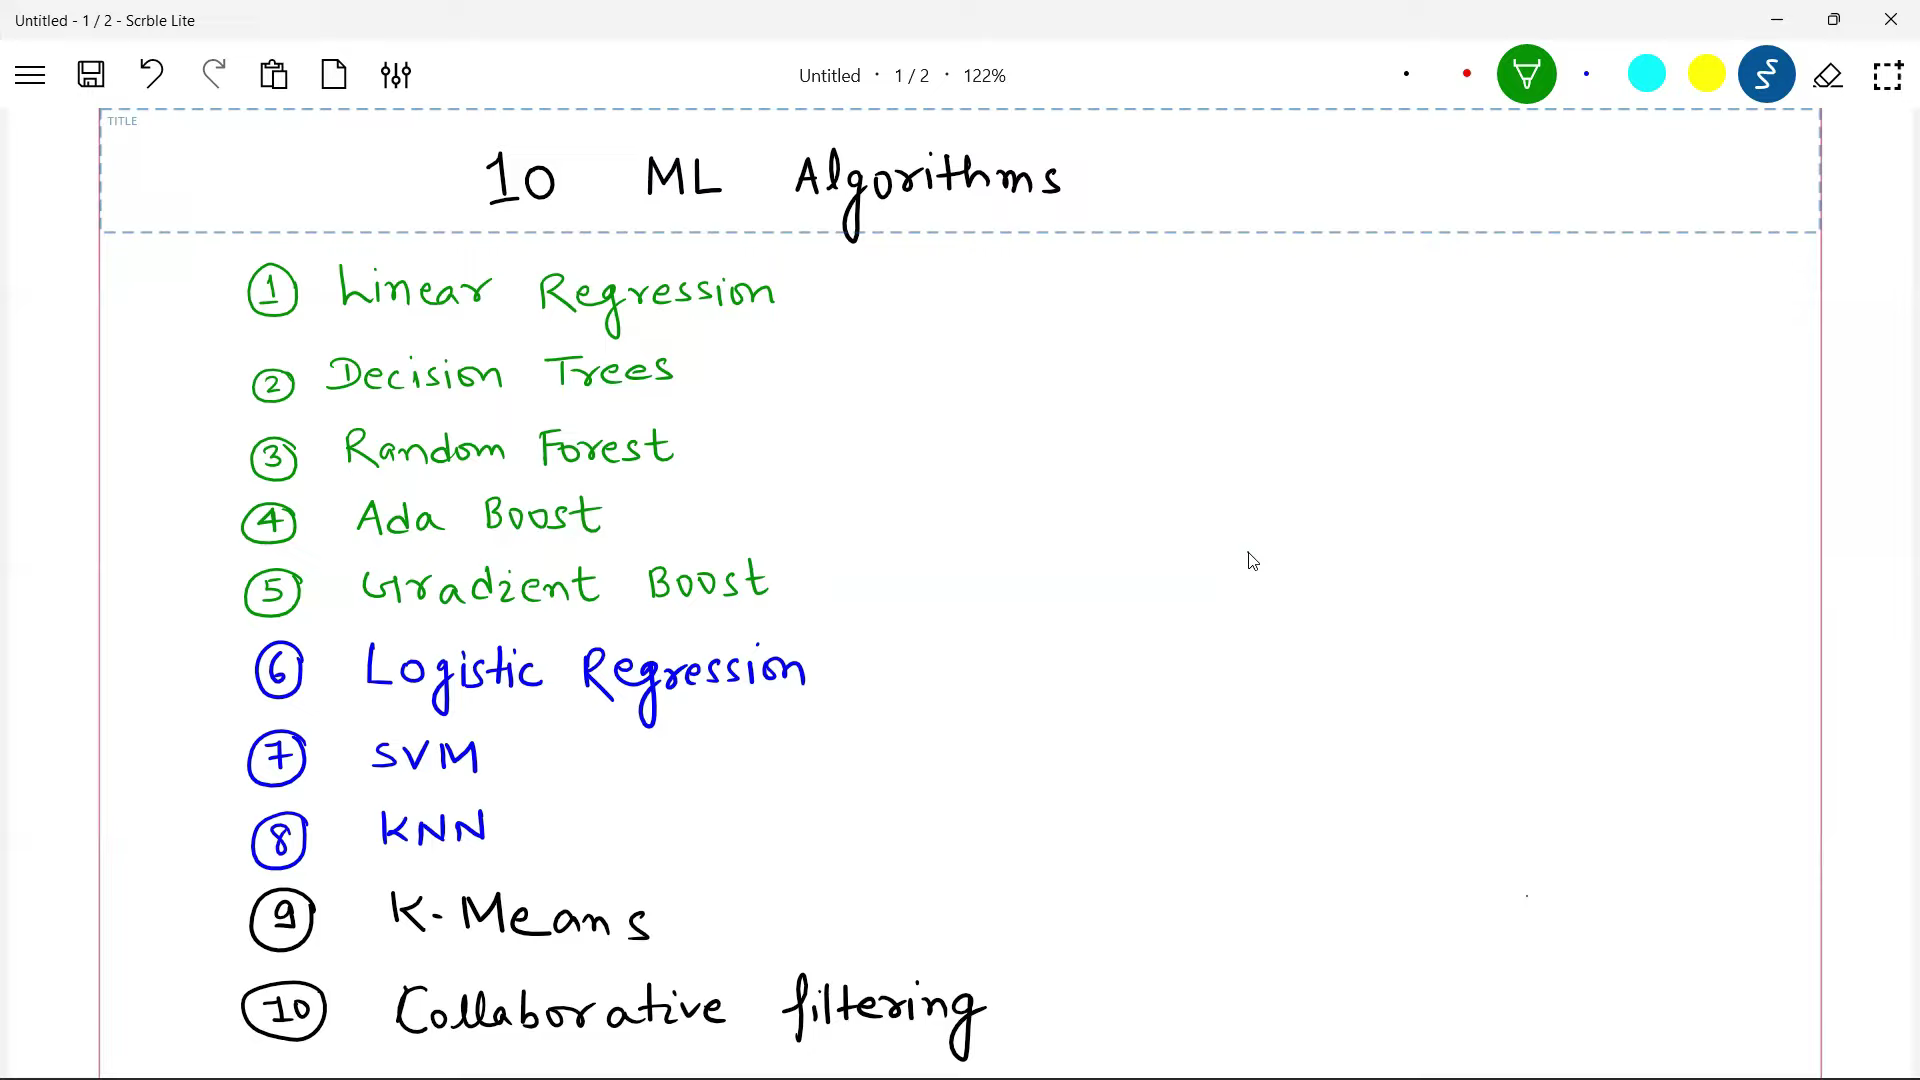 Untitled - 1 / 2 - Scrble Lite
Untitled · 1 / 2 · 122%
TITLE
10 ML Algorithms
1 Linear Regression
2 Decision Trees
3 Random Forest
4 Ada Boost
5 Gradient Boost
6 Logistic Regression
7 SVM
8 KNN
9 K-Means
10 Collaborative filtering